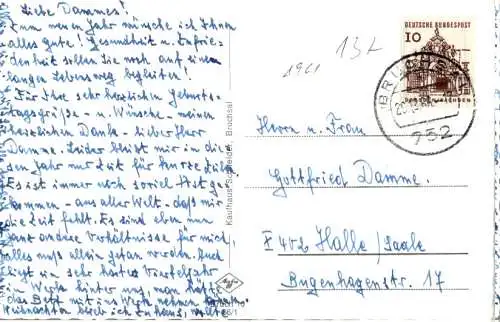 Liebe Dammes!
Zum neuen Jahr wünsche ich Ihnen
alles gute! Gesundheit u. Zufrie-
denheit sollen Sie noch auf einem
langen Lebensweg begleiten!
Für Ihre sehr herzlichen Geburts-
tagsgrüße - u. Wünsche - meinen
herzlichen Dank - lieber Herr
Damme. Leider bleibt mir in die-
sem Jahr nur Zeit für kurze Zeilen.
Es ist immer noch soviel Post ge-
kommen - aus aller Welt - daß mir
die Zeit fehlt. Es sind eben nun
ganz andere Verhältnisse für mich,
alles muß allein getan werden. Auch
liegt ein sehr hartes Vierteljahr
Werk hinter uns, man hätte
das Bett mit ins Werk nehmen
Weihnachten bleib ich zu haus,
Kaufhaus Schneider, Bruchsal
1961
13L
DEUTSCHE BUNDESPOST
10
BRUCHSAL
752
Herrn u. Frau
Gottfried Damme.
X 402 Halle/Saale
Bugenhagenstr. 17